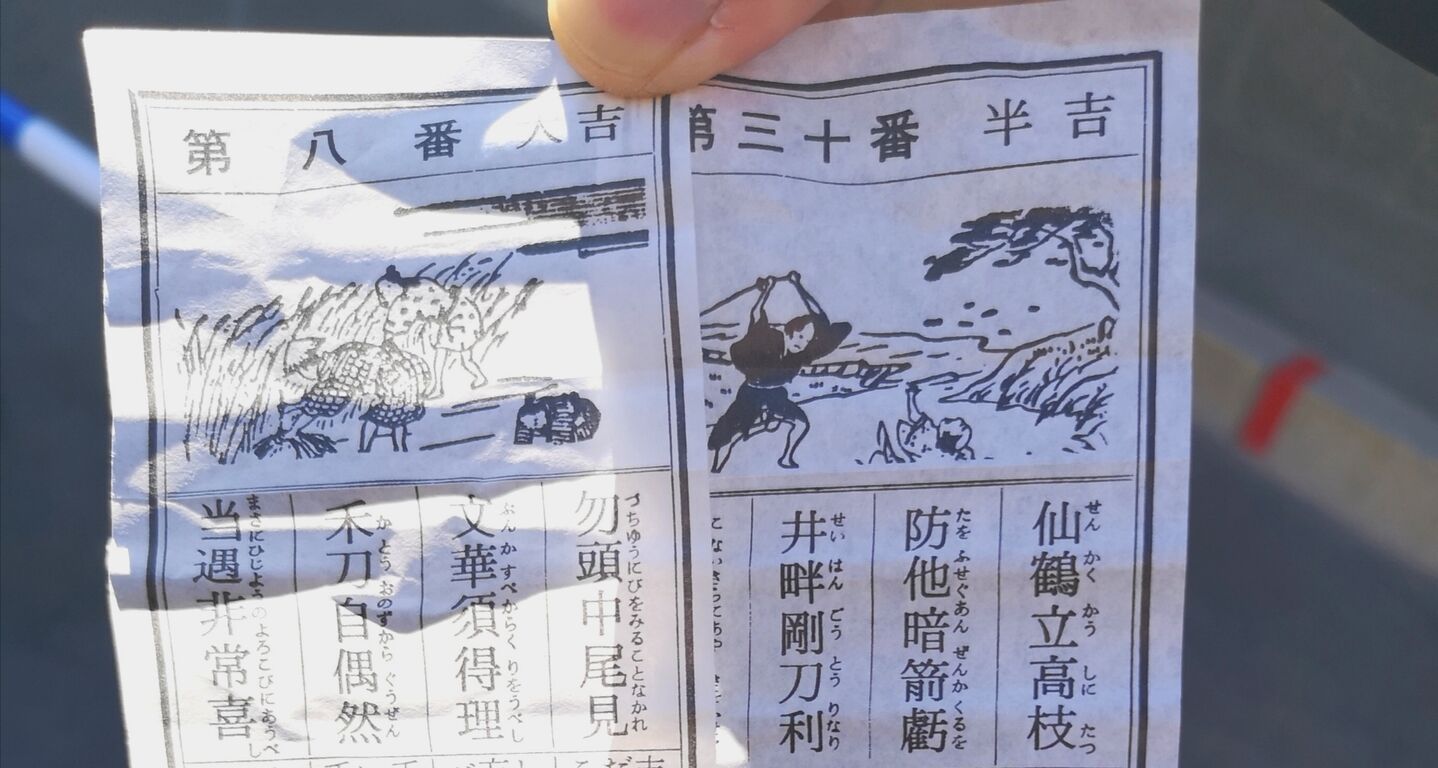 第八番 大吉
勿頭中尾見
づちゆうにびをみることなかれ
文華須得理
ぶんかすべからくりをうべし
禾刀自偶然
かとうおのずからぐうぜん
当遇非常喜
まさにひじようのよろこびにあうべし
第三十番 半吉
仙鶴立高枝
せんかくかうしにたつ
防他暗箭虧
たをふせぐあんぜんかくるを
井畔剛刀利
せいはんごうとうりなり